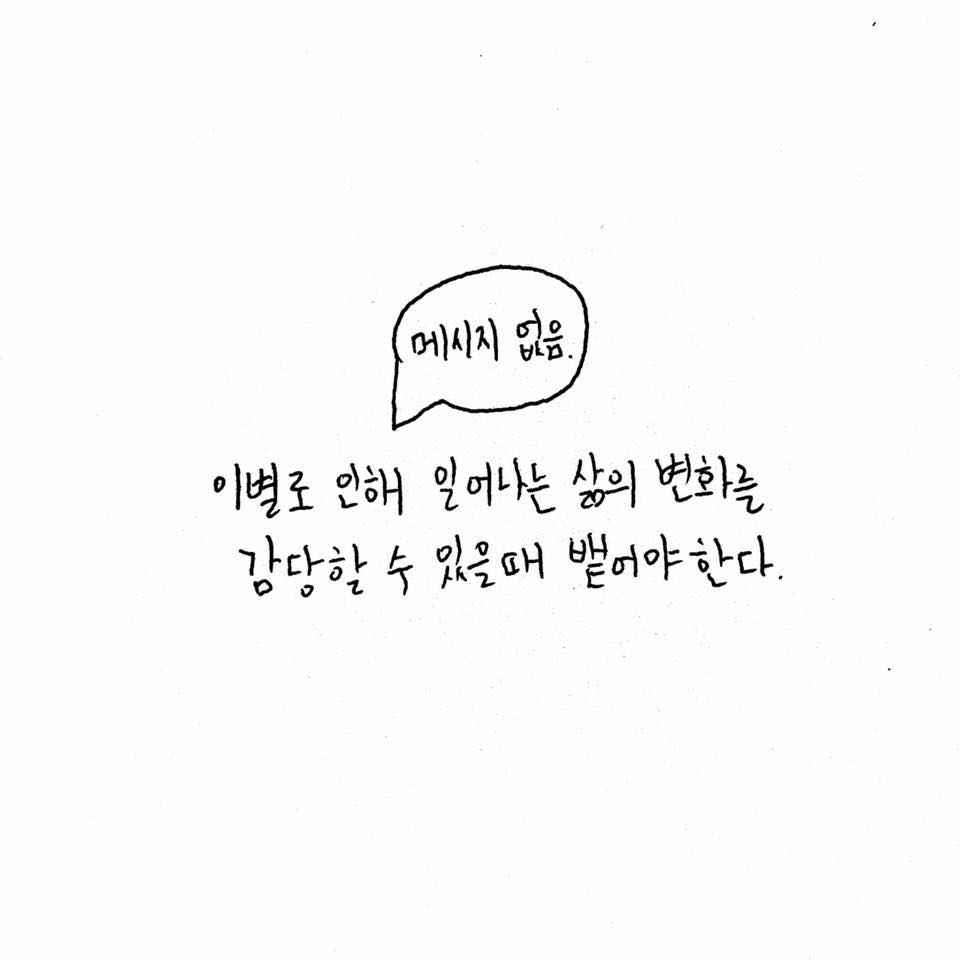 메시지 없음.
이별로 인해 일어나는 삶의 변화를
감당할 수 있을때 뱉어야한다.